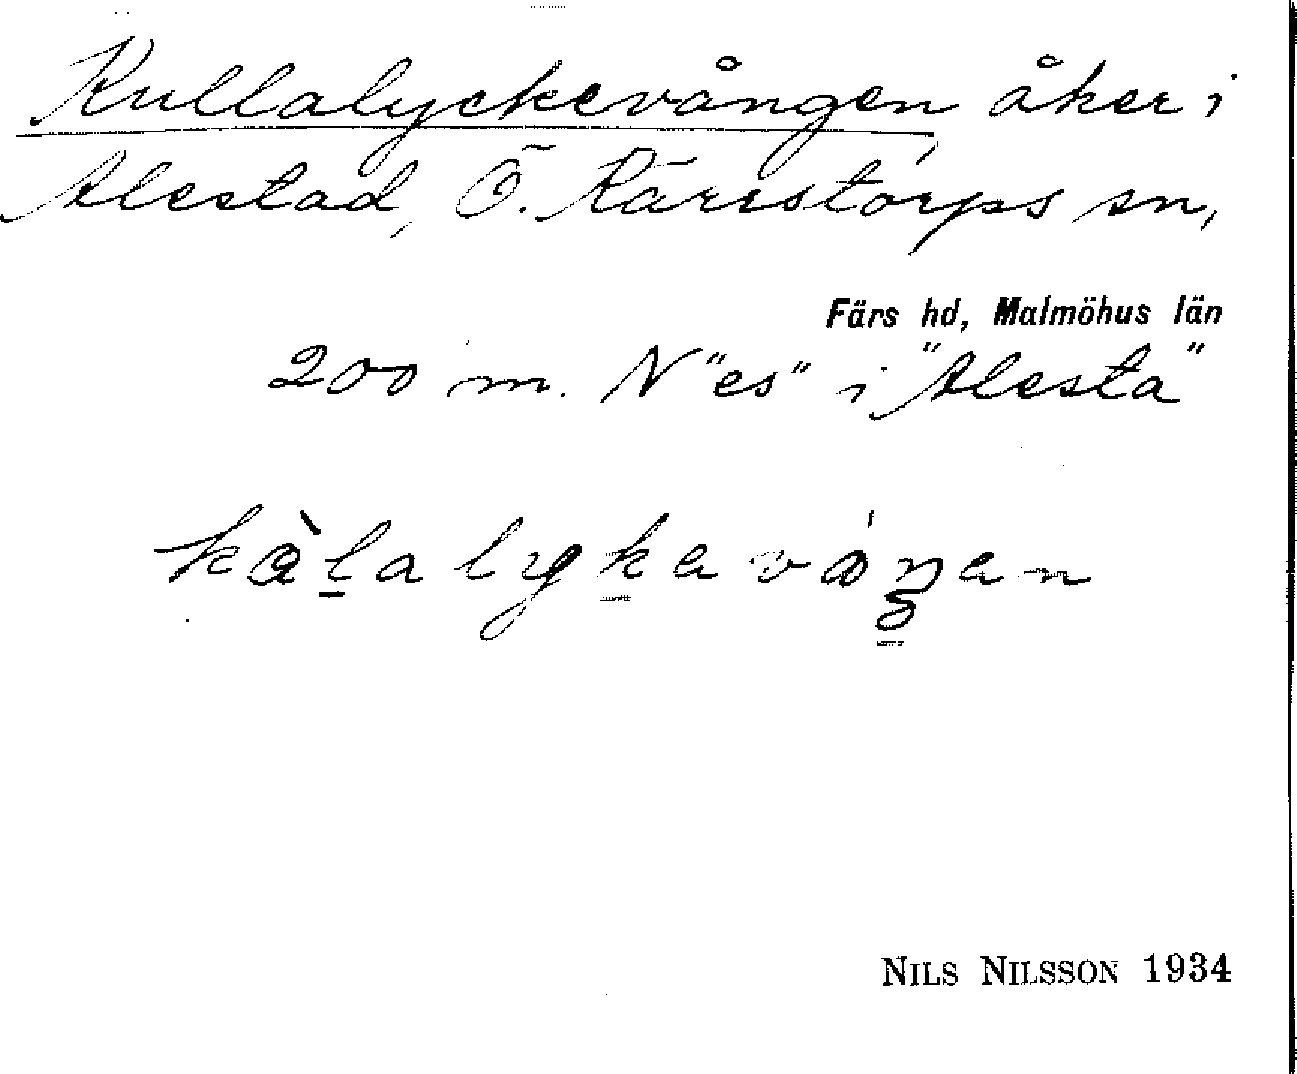 Kullalyckevången åker i
Alestad, Ö. Kärrstorps sn,
Färs hd, Malmöhus län
200 m. N "es" i "Alesta"
NILS NILSSON 1934